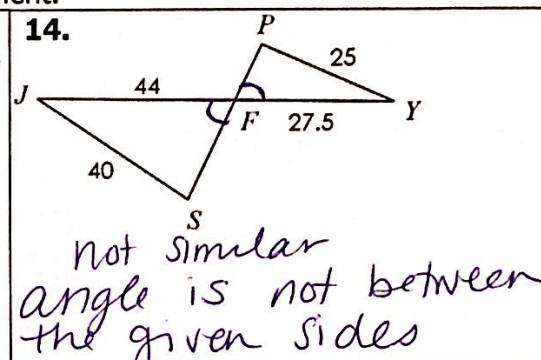 ment.
14.
P
25
J
44
F
27.5
Y
40
S
not similar
angle is not between
the given sides